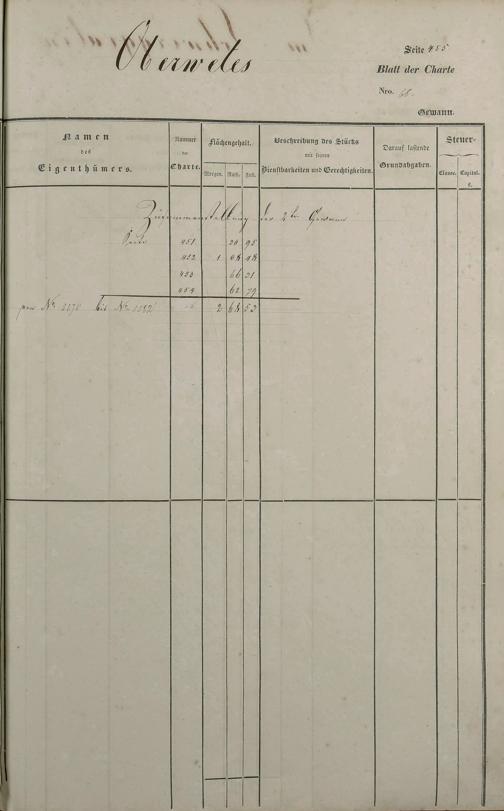 Oberwetes
Seite 455
Blatt der Charte
Nro. 68.
Gewann.
Namen des Eigenthümers.
Nummer der Charte.
Flächengehalt.
Morgen. Ruth. Fuß.
Beschreibung des Stücks mit seinen Dienstbarkeiten und Gerechtigkeiten.
Darauf lastende Grundabgaben.
Steuer-
Classe. Capital.
f.
Zusammenstellung der 2ten Gewann
Seite 451 95
452 1 68 48
453 66 31
454 62 79
von No. bis No. 2 68 53